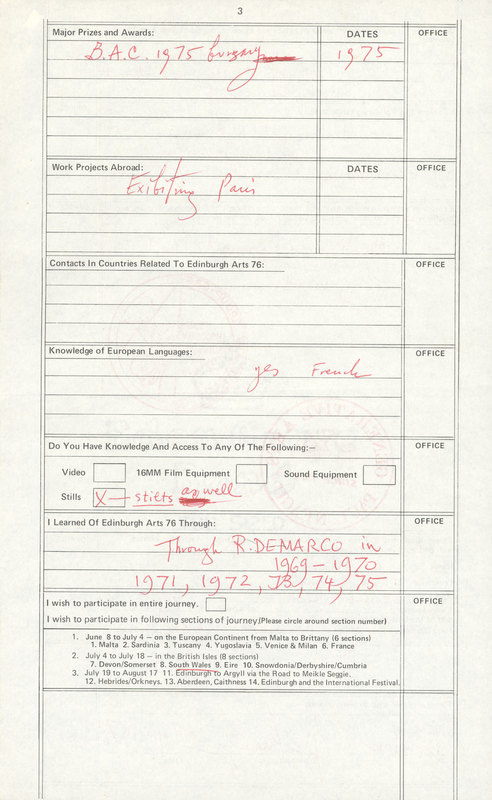 3
Major Prizes and Awards: DATES OFFICE
B.A.C. 1975 bursary 1975
Work Projects Abroad: DATES OFFICE
Exibiting Paris
Contacts In Countries Related To Edinburgh Arts 76: OFFICE
Knowledge of European Languages: OFFICE
yes French
Do You Have Knowledge And Access To Any Of The Following:— OFFICE
Video 16MM Film Equipment Sound Equipment
Stills X — stilts as well
I Learned Of Edinburgh Arts 76 Through: OFFICE
Through R. DEMARCO in
1969 – 1970
1971, 1972, 73, 74, 75
I wish to participate in entire journey. OFFICE
I wish to participate in following sections of journey.(Please circle around section number)
1. June 8 to July 4 — on the European Continent from Malta to Brittany (6 sections)
1. Malta 2. Sardinia 3. Tuscany 4. Yugoslavia 5. Venice & Milan 6. France
2. July 4 to July 18 — in the British Isles (8 sections)
7. Devon/Somerset 8. South Wales 9. Eire 10. Snowdonia/Derbyshire/Cumbria
3. July 19 to August 17 11. Edinburgh to Argyll via the Road to Meikle Seggie.
12. Hebrides/Orkneys. 13. Aberdeen, Caithness 14. Edinburgh and the International Festival.